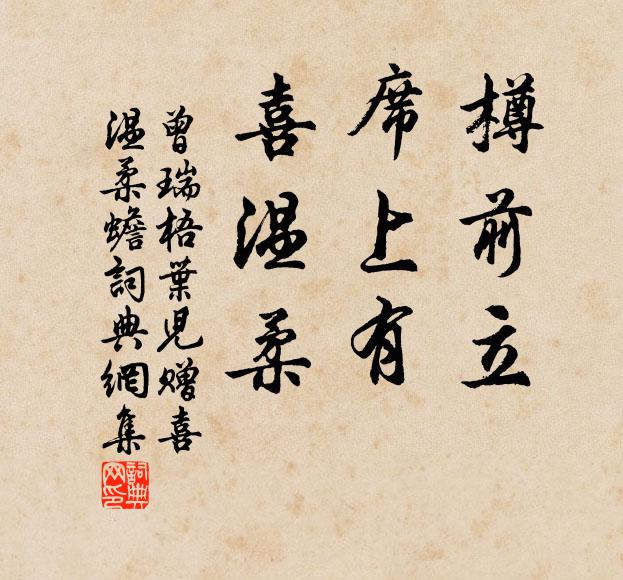 樽前立
席上有
喜温柔
曾瑞梧葉児贈喜
温柔蟾詞典網集
詞典网印